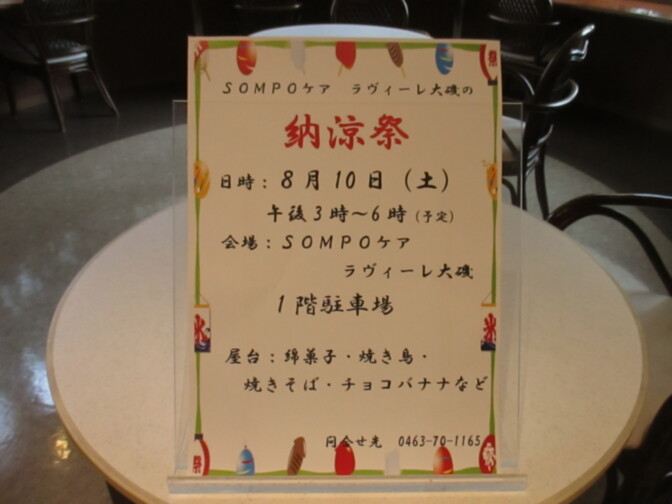 SOMPOケア ラヴィーレ大磯の
納涼祭
日時：8月10日（土）
午後3時～6時（予定）
会場：SOMPOケア
ラヴィーレ大磯
1階駐車場
屋台：綿菓子・焼き鳥・
焼きそば・チョコバナナなど
問合せ先 0463-70-1165
祭
氷
氷
祭